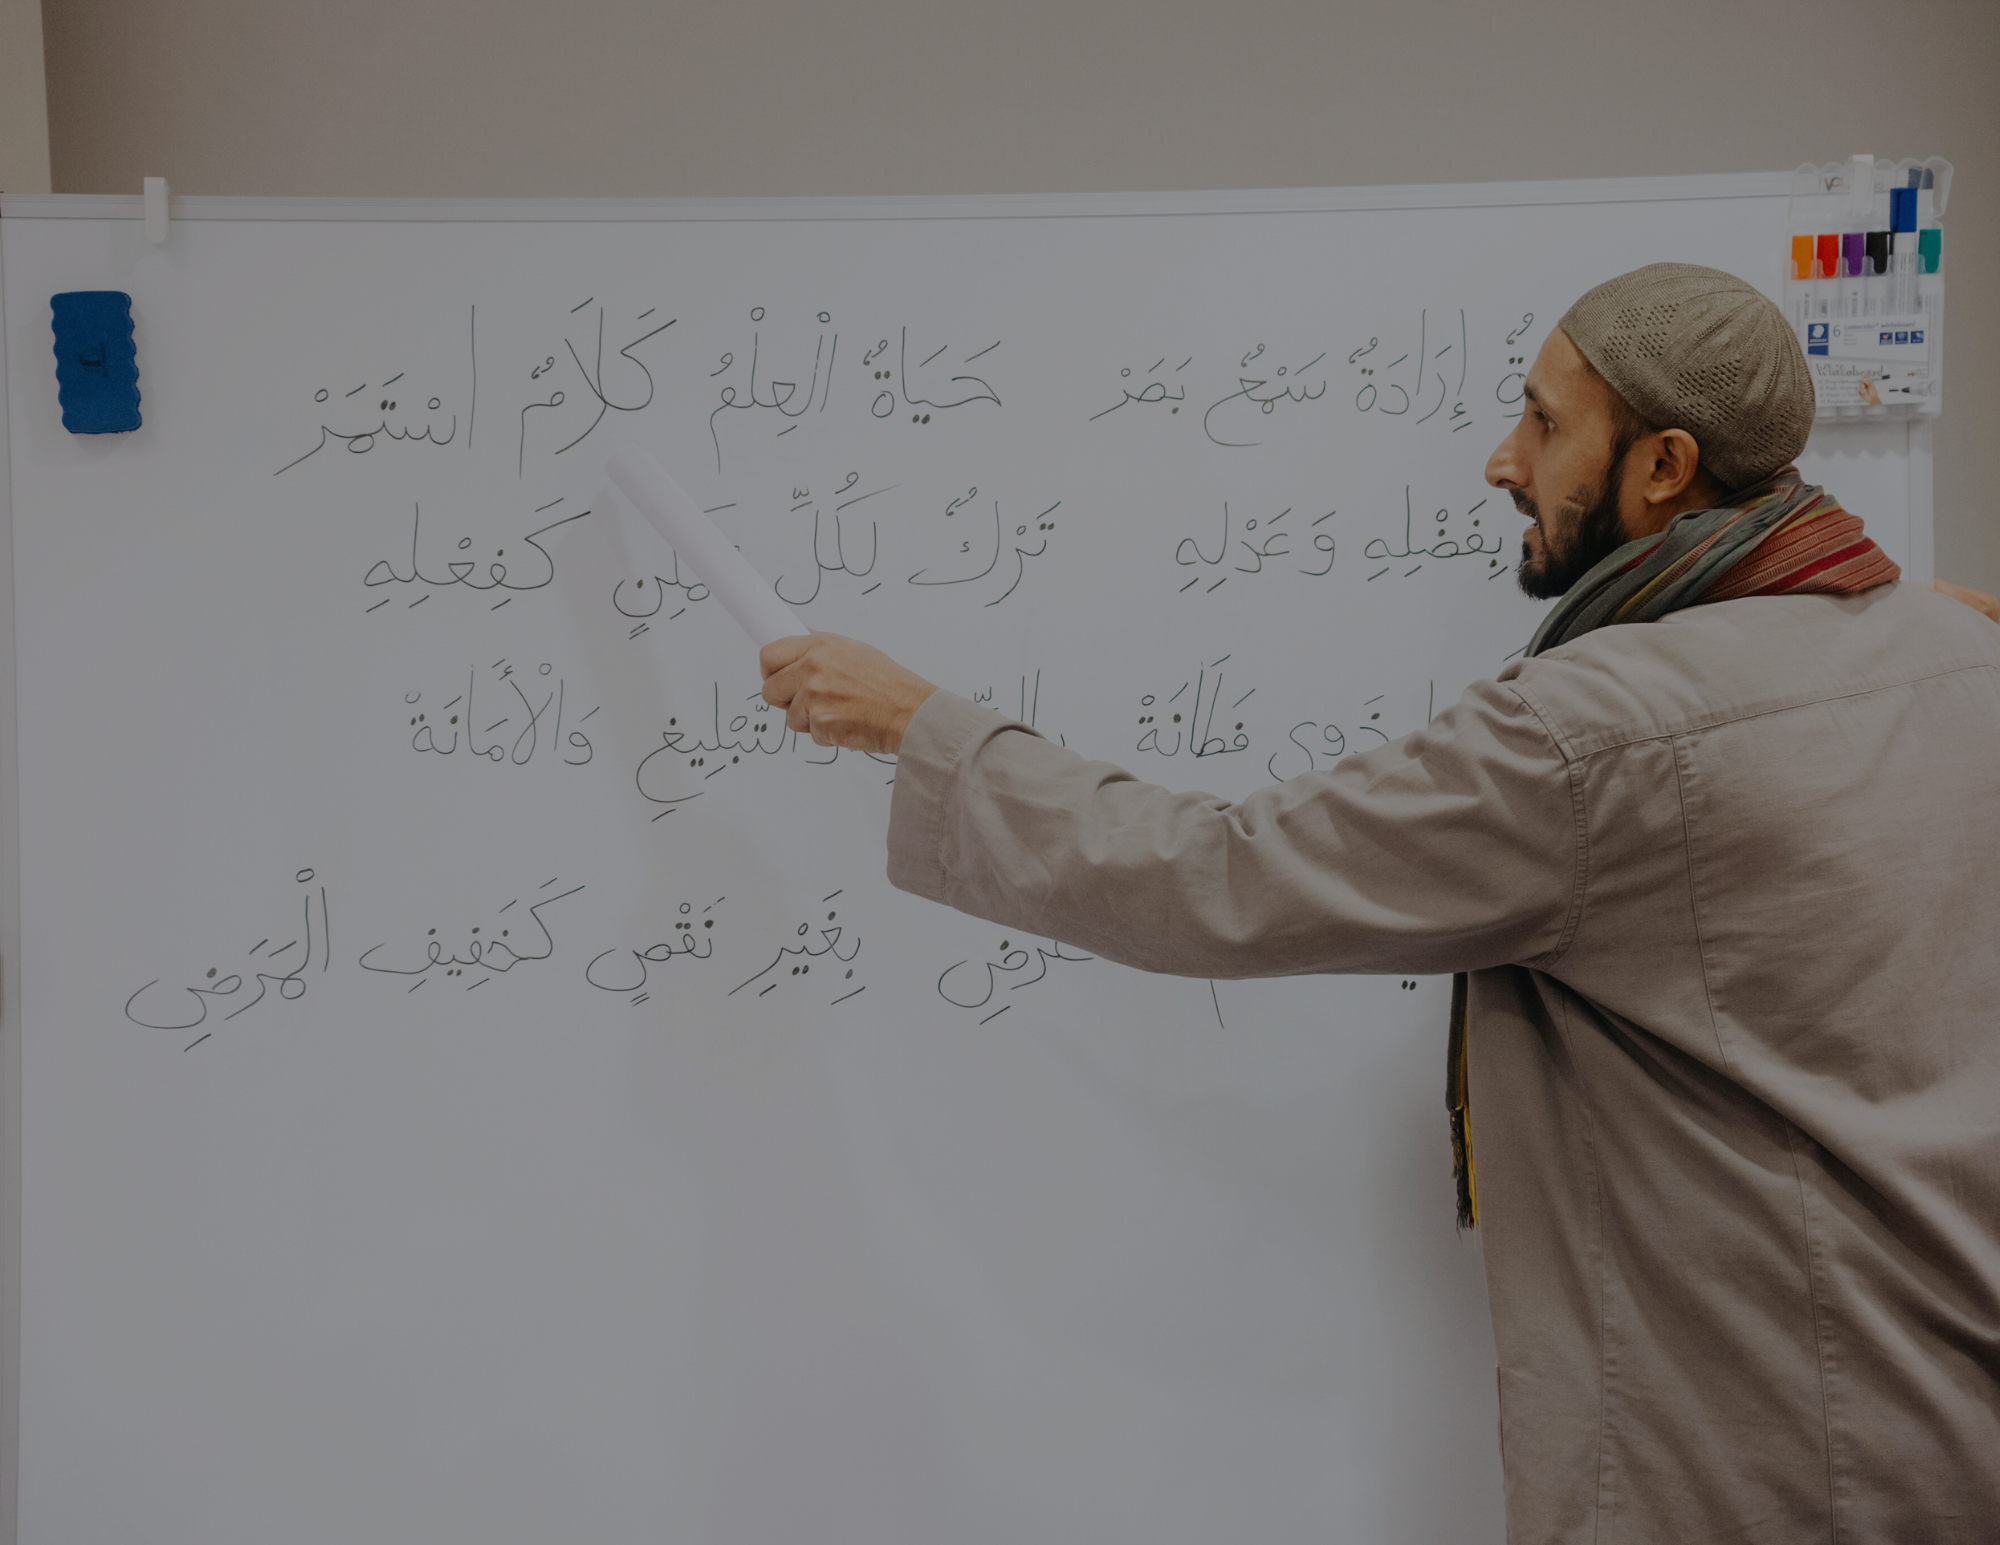 إِرَادَةٌ سَمْعٌ بَصَرْ حَيَاةٌ الْعِلْمُ كَلَامٌ اسْتَمَرْ
بِفَضْلِهِ وَعَدْلِهِ تَرْكٌ لِكُلِّ كَفِعْلِهِ
ذَوِي فَطَانَةْ وَالتَّبْلِيغِ وَالْأَمَانَةْ
بِغَيْرِ نَقْصٍ كَخَفِيفِ الْمَرَضِ
6 Lumocolor whiteboard
Whiteboard